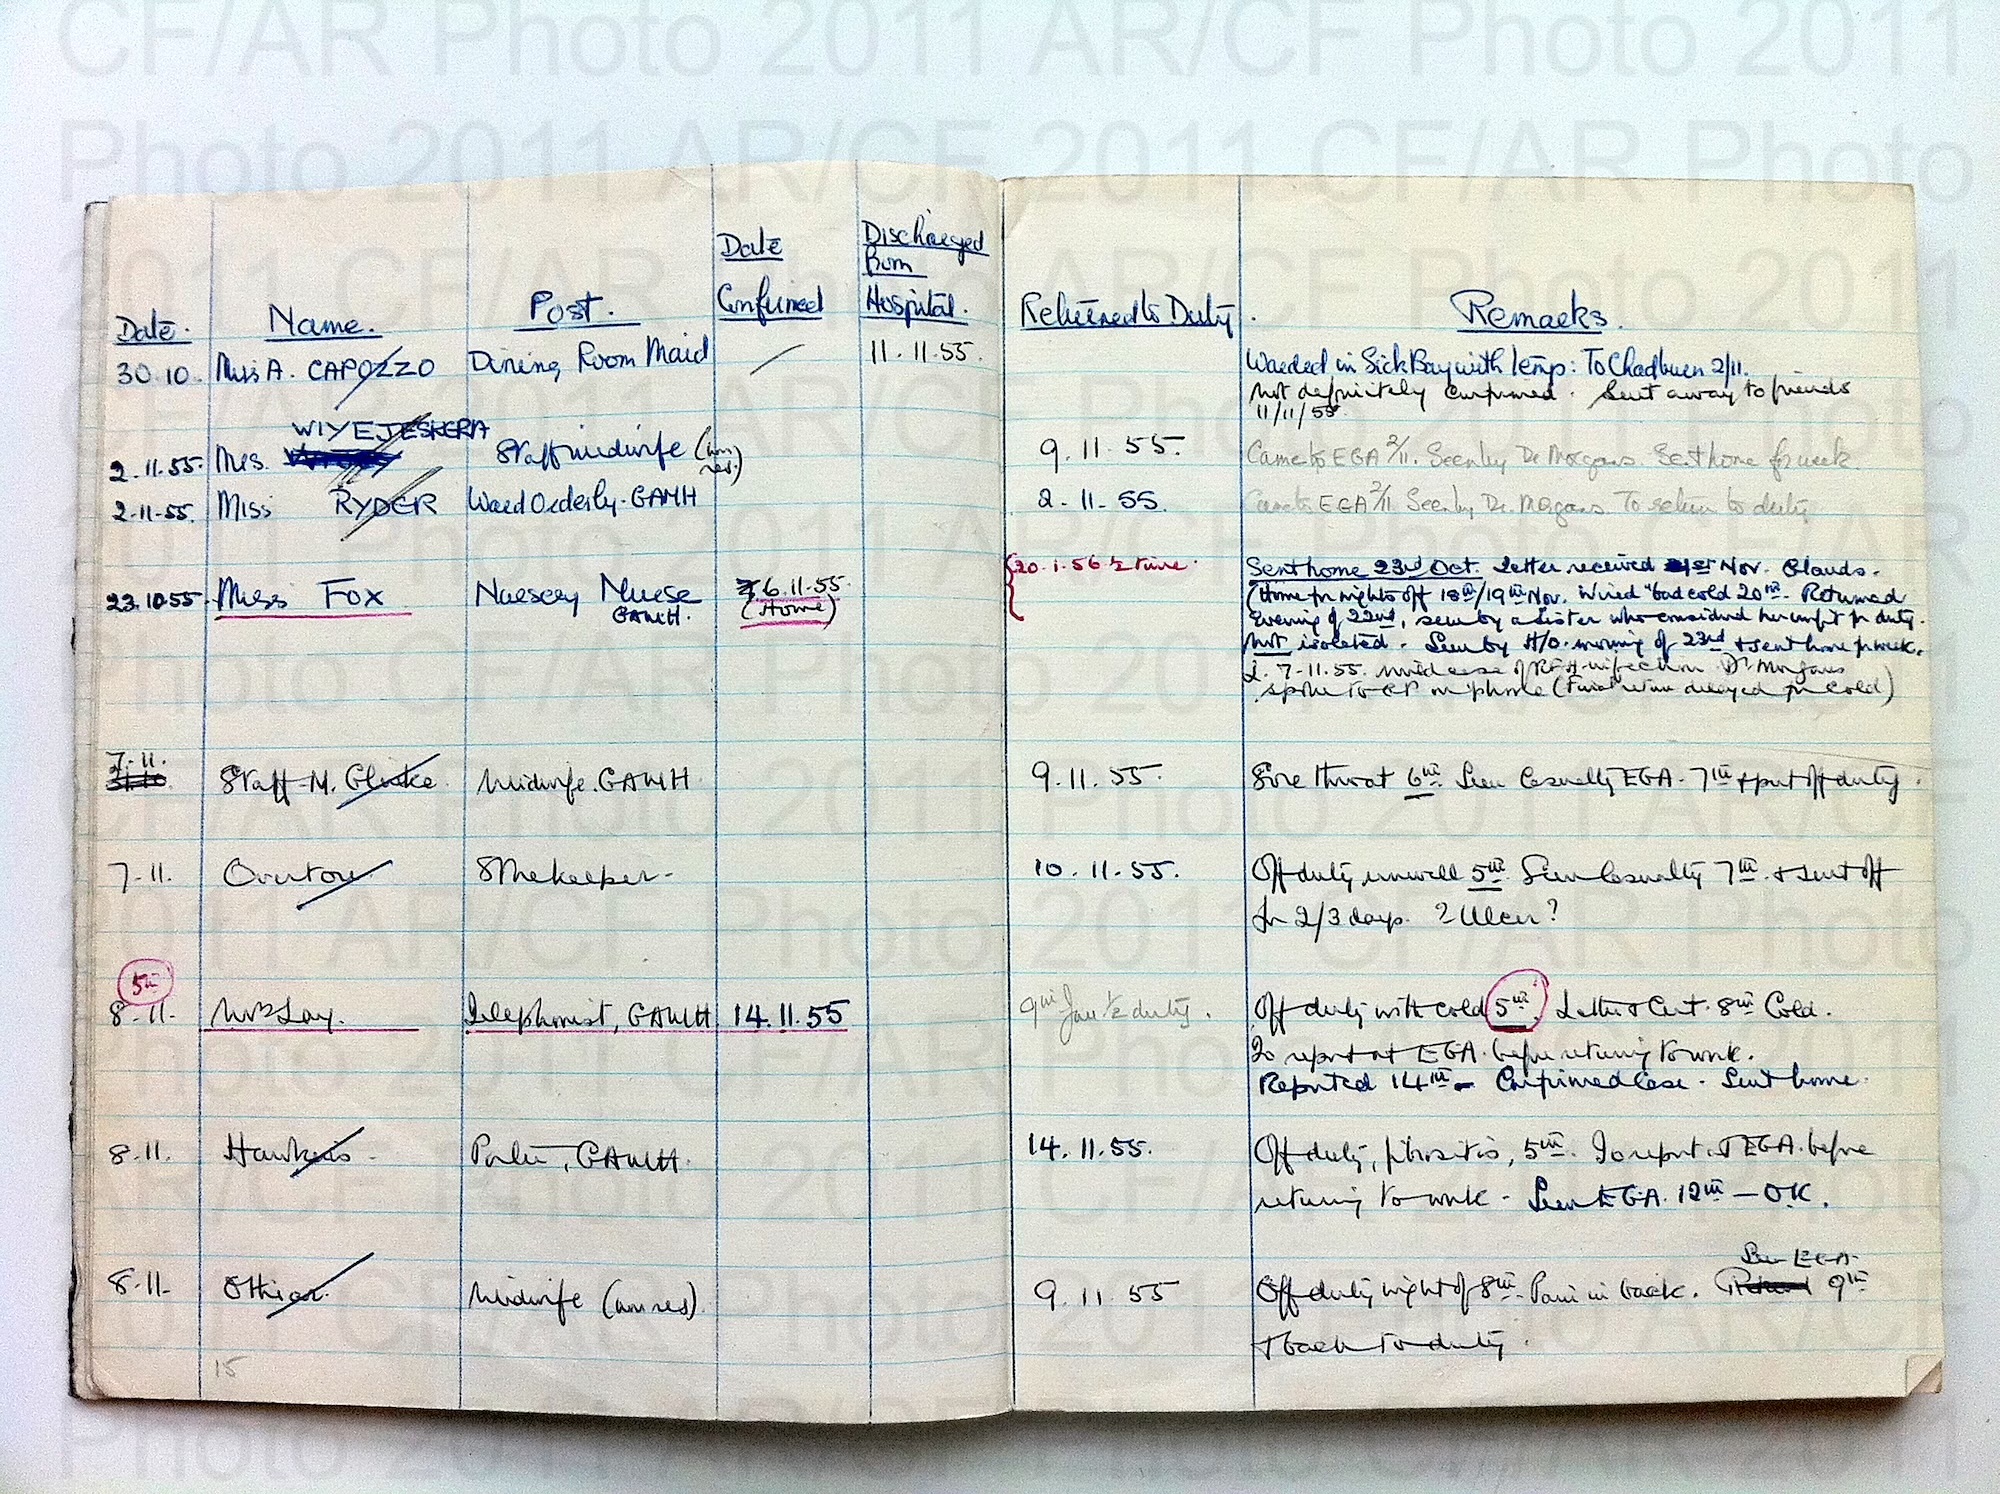 CF/AR Photo 2011 AR/CF Photo 2011
Photo 2011 AR/CF 2011 CF/AR Photo
Date. Name. Post. Date Confirmed Discharged from Hospital. Returned to Duty. Remarks.
30.10. Miss A. CAPOZZO Dining Room Maid / 11.11.55. Warded in Sick Bay with temp: To Chadburn 2/11.
Not definitely confirmed. Sent away to friends
11/11/55.
WIYEJESKERA
2.11.55. Mrs. Staff midwife (non res.) 9.11.55. Came to EGA 2/11. Seen by Dr Morgans. Sent home for week.
2-11-55. Miss RYDER Ward Orderly-GAMH 2-11-55. Came to EGA 2/11 Seen by Dr. Morgans. To return to duty
23.10.55. Miss Fox Nursery Nurse GAMH. 6.11.55. (Home) 20.1.56 ½ time. Sent home 23rd Oct. Letter received Nov. Glands.
(Home for nights off 18th/19th Nov. Wired "bad cold 20th. Returned
evening of 22nd, seen by a Sister who considered her unfit for duty.
Not isolated. Seen by H/O. morning of 23rd & sent home for week.
7-11-55. mild case of RFH infection Dr Morgans
spoke to GP on 'phone (First return delayed for cold)
7-11. Staff-M. Midwife. GAMH 9.11.55. Sore throat 6th. Seen Casualty EGA. 7th & put off duty.
7-11. Overton Storekeeper- 10.11.55. Off duty unwell 5th. Seen Casualty 7th. & sent off
for 2/3 days. ? Ulcer?
5th
8-11- Mrs Lay. Telephonist, GAMH 14.11.55 9th Jan ½ duty. Off duty with cold 5th. Letter & Cert. 8th Cold.
To report at EGA. before returning to work.
Reported 14th - Confirmed Case. Sent home.
8.11. Hawkins. Porter, GAMH. 14.11.55. Off duty, fibrositis, 5th. To report at EGA. before
returning to work - Seen EGA. 12th - O.K.
See EGA
8.11- Midwife (non res). 9.11.55 Off duty night of 8th. Pain in back. 9th
& back to duty.
15